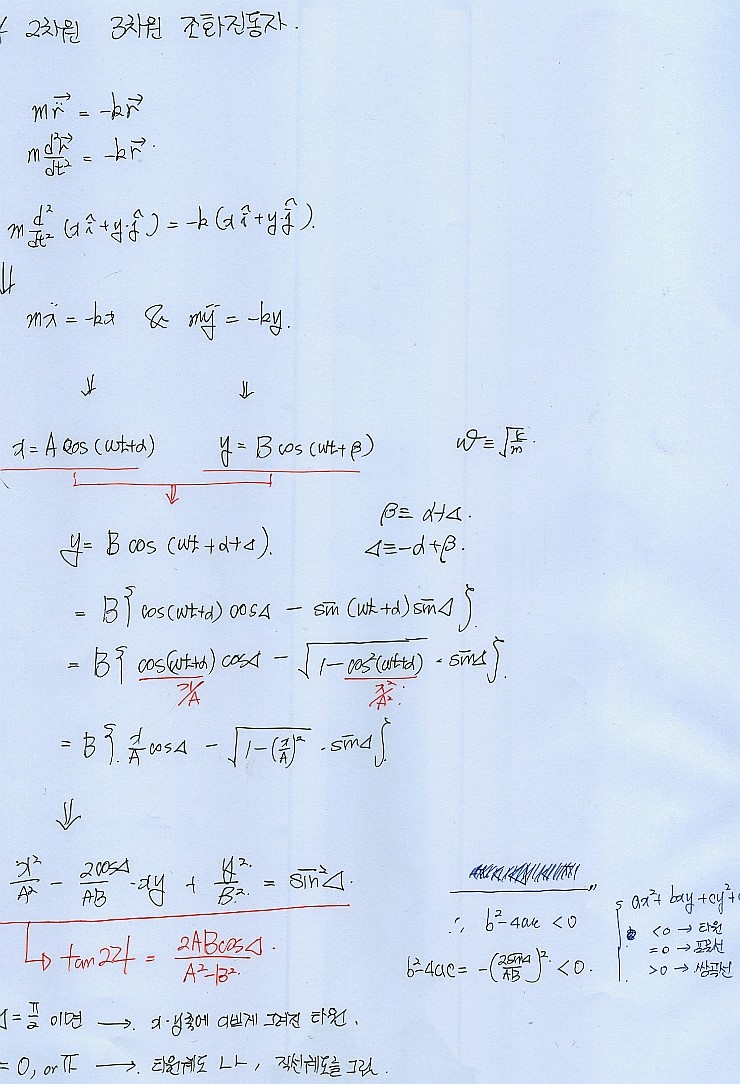 2차원 3차원 조화진동자.
m\ddot{\vec{r}} = -k\vec{r}
m\frac{d^2\vec{r}}{dt^2} = -k\vec{r}.
m\frac{d^2}{dt^2}(x\hat{i}+y\cdot\hat{j}) = -k(x\hat{i}+y\cdot\hat{j}).
⇓
m\ddot{x} = -kx & m\ddot{y} = -ky.
⇓ ⇓
x = A cos(ωt+α) y = B cos(ωt+β) ω ≡ \sqrt{\frac{k}{m}}.
β ≡ α+Δ.
y = B cos(ωt+α+Δ). Δ ≡ -α+β.
= B{cos(ωt+α) cosΔ - sin(ωt+α) sinΔ}
= B{cos(ωt+α) cosΔ - \sqrt{1-cos^2(ωt+α)} · sinΔ}.
x/A x²/A².
= B{\frac{x}{A} cosΔ - \sqrt{1-(\frac{x}{A})^2} · sinΔ}
⇓
\frac{x^2}{A^2} - \frac{2cosΔ}{AB}·xy + \frac{y^2}{B^2} = sin^2Δ.
→ tan2ψ = \frac{2ABcosΔ}{A^2-B^2}.
∴ b²-4ac < 0
b²-4ac = -(\frac{2sinΔ}{AB})^2 < 0.
ax²+bxy+cy²+
<0 → 타원
=0 → 포물선
>0 → 쌍곡선
= \frac{π}{2} 이면 → x·y축에 나란하게 그려진 타원.
= 0, or π → 타원궤도 나, 직선궤도를 그림.